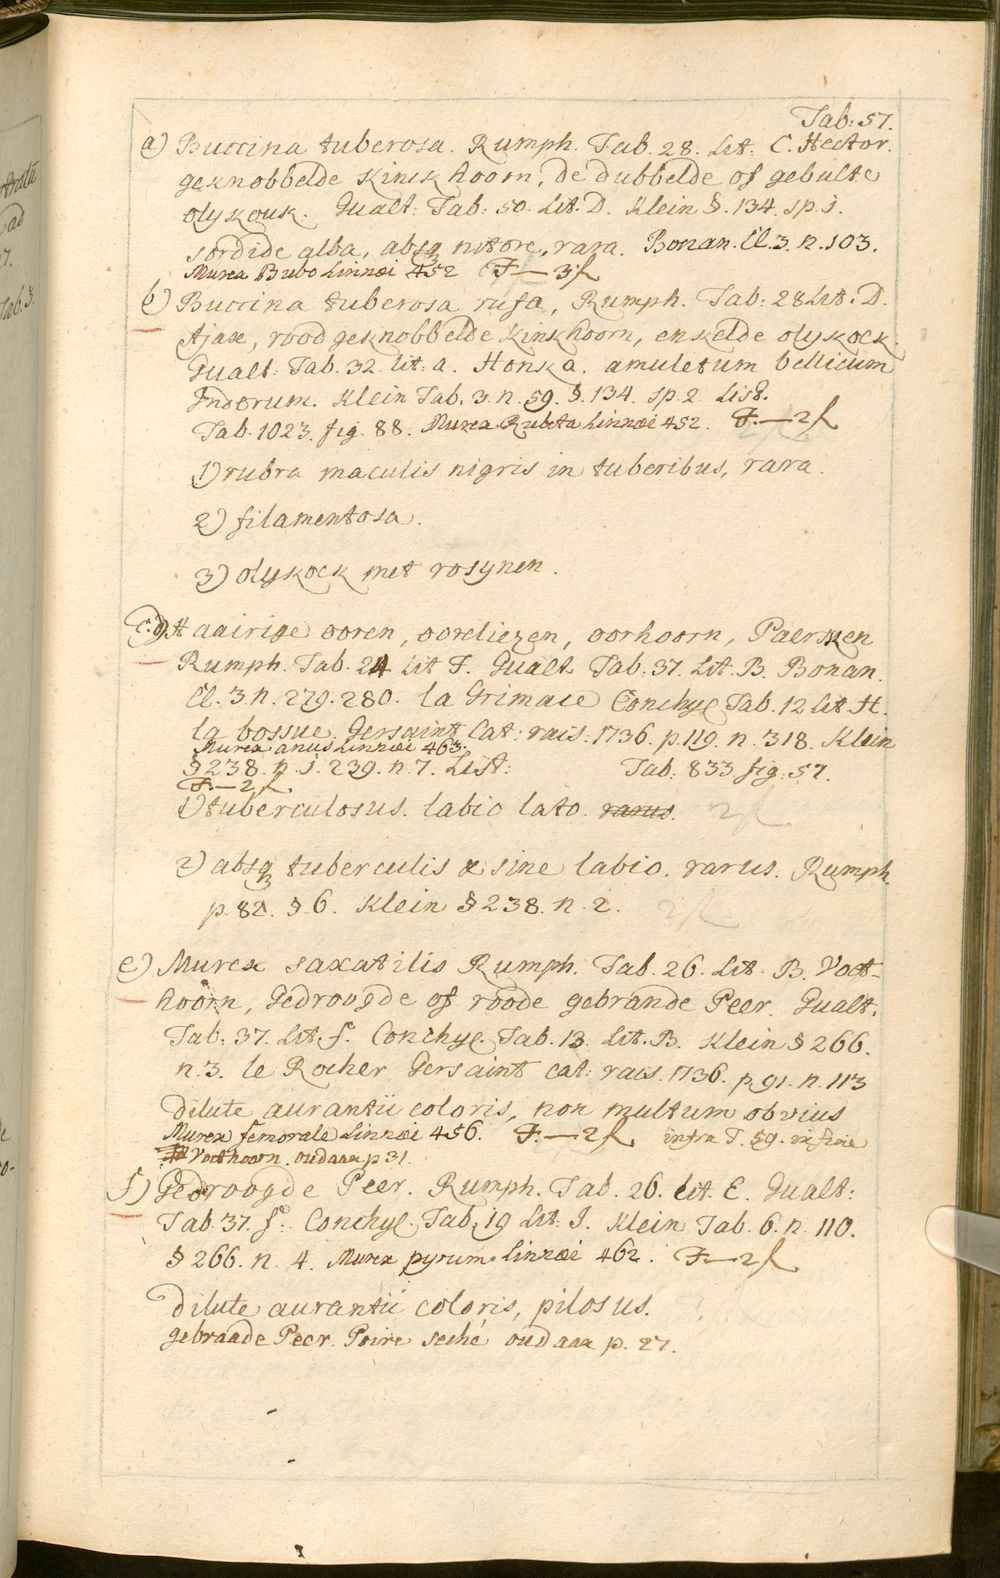 Tab: 57.
a) Buccina tuberosa. Rumph. Tab. 28. Lit: C. Hector.
geknobbelde kinkhoorn, de dubbelde of gebulte
olykouk. Gualt: Tab: 50. Lit. D. Klein §. 134. sp. 1.
sordide alba, absq nitore, rara. Bonan. Cl. 3. n. 103.
Murex Bubo Linnæi 452 F — 3 fl
b) Buccina tuberosa rufa, Rumph. Tab: 28 Lit: D.
Ajax, rood geknobbelde kinkhoorn, enkelde olykock.
Gualt: Tab. 32. lit: a. Honska. amuletum bellicum
Indorum. Klein Tab. 3. n. 59. §. 134. sp. 2. List.
Tab. 1023. fig. 88. Murex Rubeta Linnæi 452. F. — 2 fl
1) rubra maculis nigris in tuberibus, rara.
2) filamentosa.
3) olykock met rosynen.
c. d) Haairige ooren, oorliezen, oorhoorn, Paerssen
Rumph. Tab. 24 Lit F. Gualt. Tab. 37. Lit. B. Bonan.
Cl. 3. n. 279. 280. la Grimace Conchyl Tab. 12 Lit H.
la bossue. Gersaint Cat: rais. 1736. p. 119. n. 318. Klein
Murex anus Linnæi 463.
§ 238. n. 1. 239. n. 7. List: Tab: 833 fig: 57.
F — 2 fl.
1) tuberculosus. labio lato. rarus. 2 fl
2) absq tuberculis & sine labio. rarus. Rumph.
p. 82. §. 6. Klein § 238. n. 2. 2 fl
e) Murex saxatilis Rumph. Tab. 26. Lit. B. Voet-
hoorn, Gedroogde of roode gebrande Peer. Gualt.
Tab: 37. Lit. f. Conchyl. Tab. 13. Lit. B. Klein § 266.
n. 3. le Rocher Gersaint cat: rais. 1736. p. 91. n. 113
dilute aurantii coloris, non multum obvius
Murex femorale Linnæi 456. F. — 2 fl. infra T. 59.
Voethoorn. oudaan p 31.
f) Gedroogde Peer. Rumph. Tab. 26. Lit. E. Gualt:
Tab. 37. f. Conchyl. Tab. 19 Lit: I. Klein Tab. 6. n. 110.
§ 266. n. 4. Murex pyrum Linnæi 462. F — 2 fl.
dilute aurantii coloris, pilosus.
gebraade Peer. Poire seche oudaan p. 27.